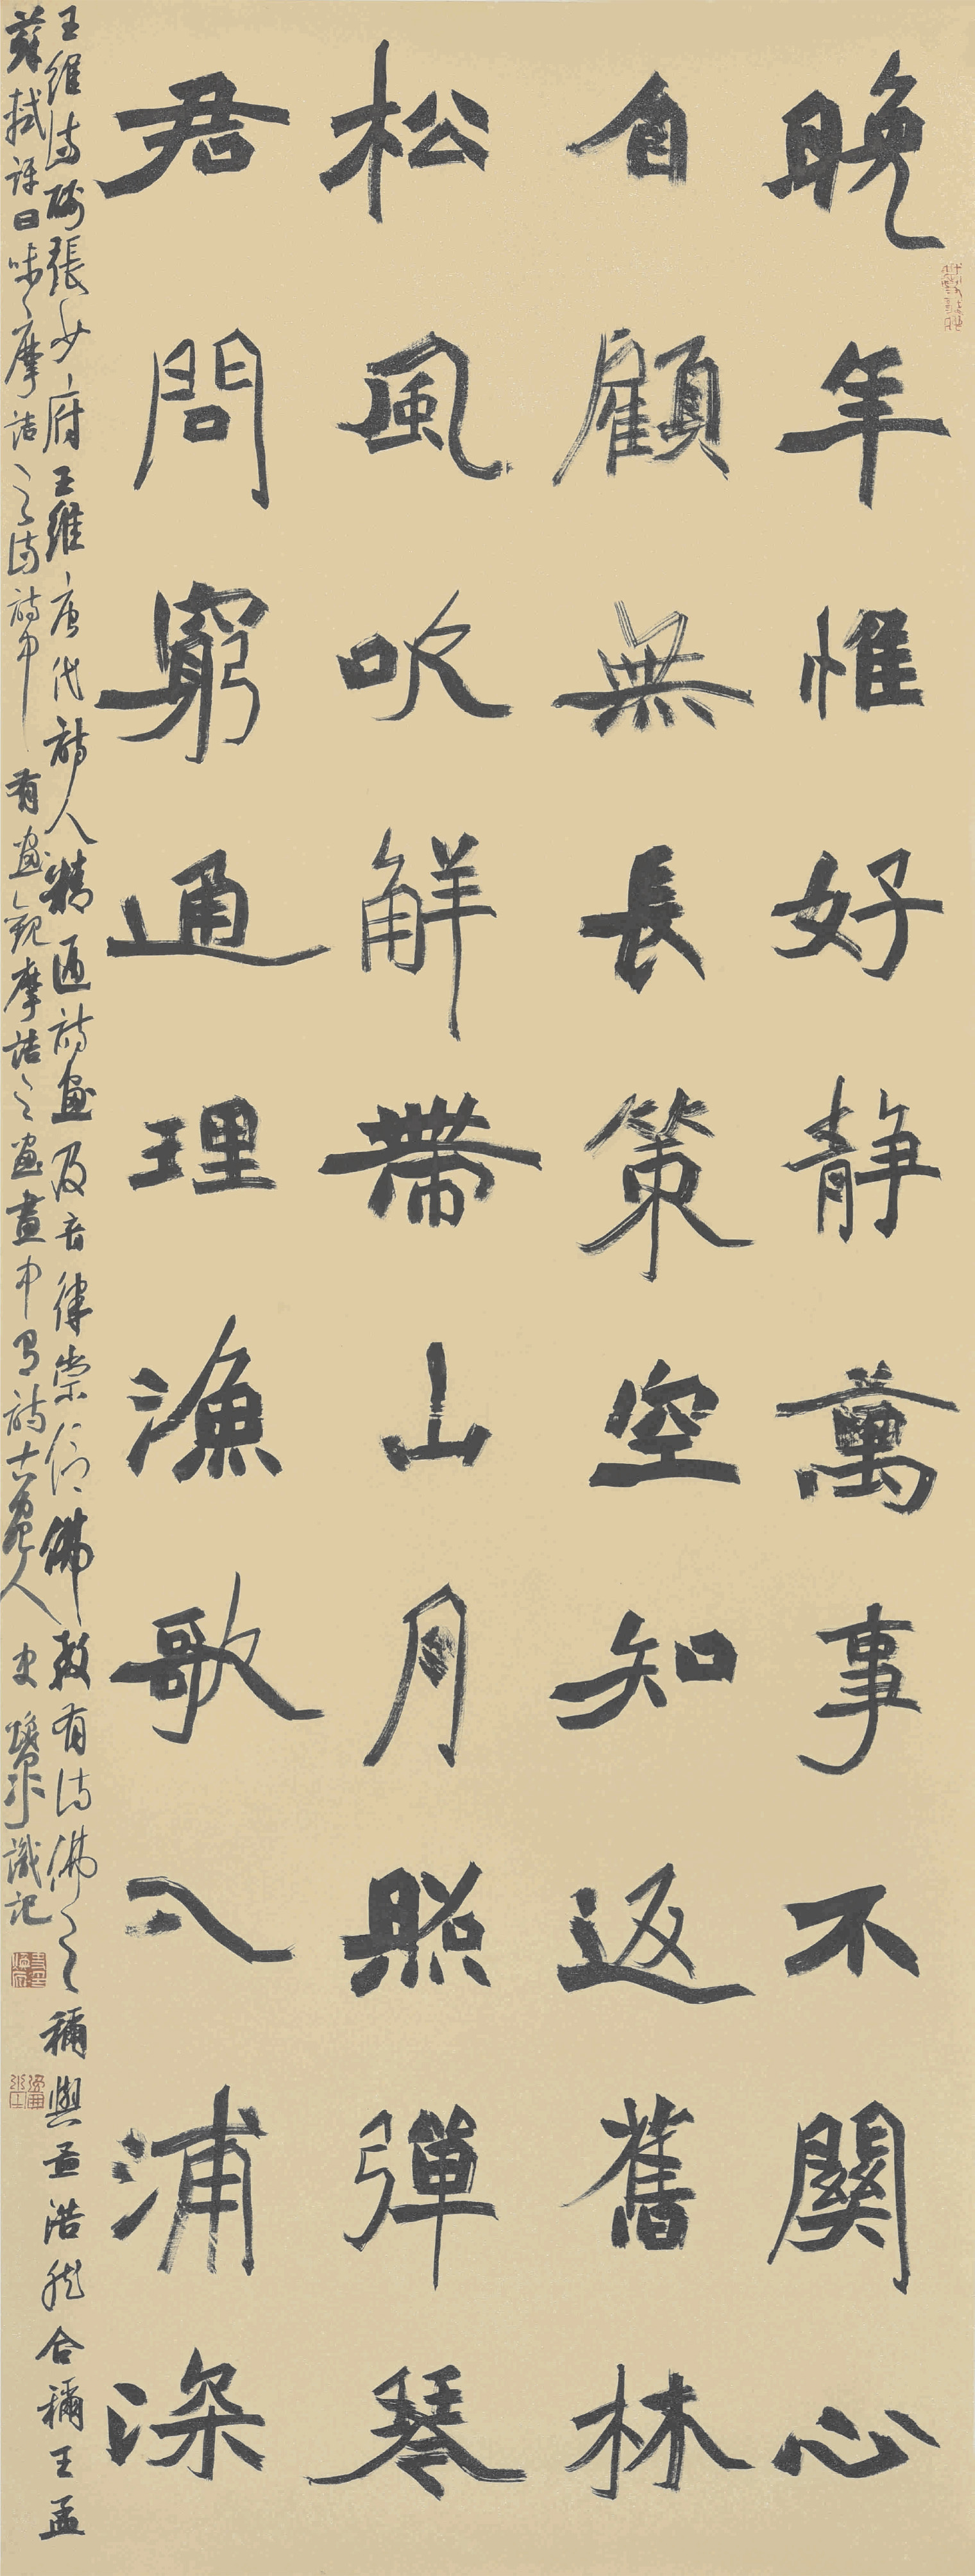 晚年惟好静萬事不關心
自顧無長策空知返舊林
松風吹解帶山月照彈琴
君問窮通理漁歌入浦深
王維詩酬張少府王維唐代詩人精通詩畫及音律崇信佛教有詩佛之稱與孟浩然合稱王孟
蘇軾評曰味摩詰之詩詩中有畫觀摩詰之畫畫中有詩古襄人史 識記